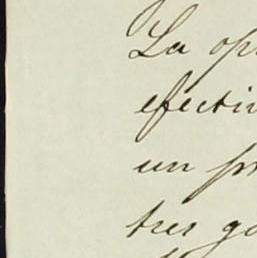 La op
efectiv
un pr
tres go